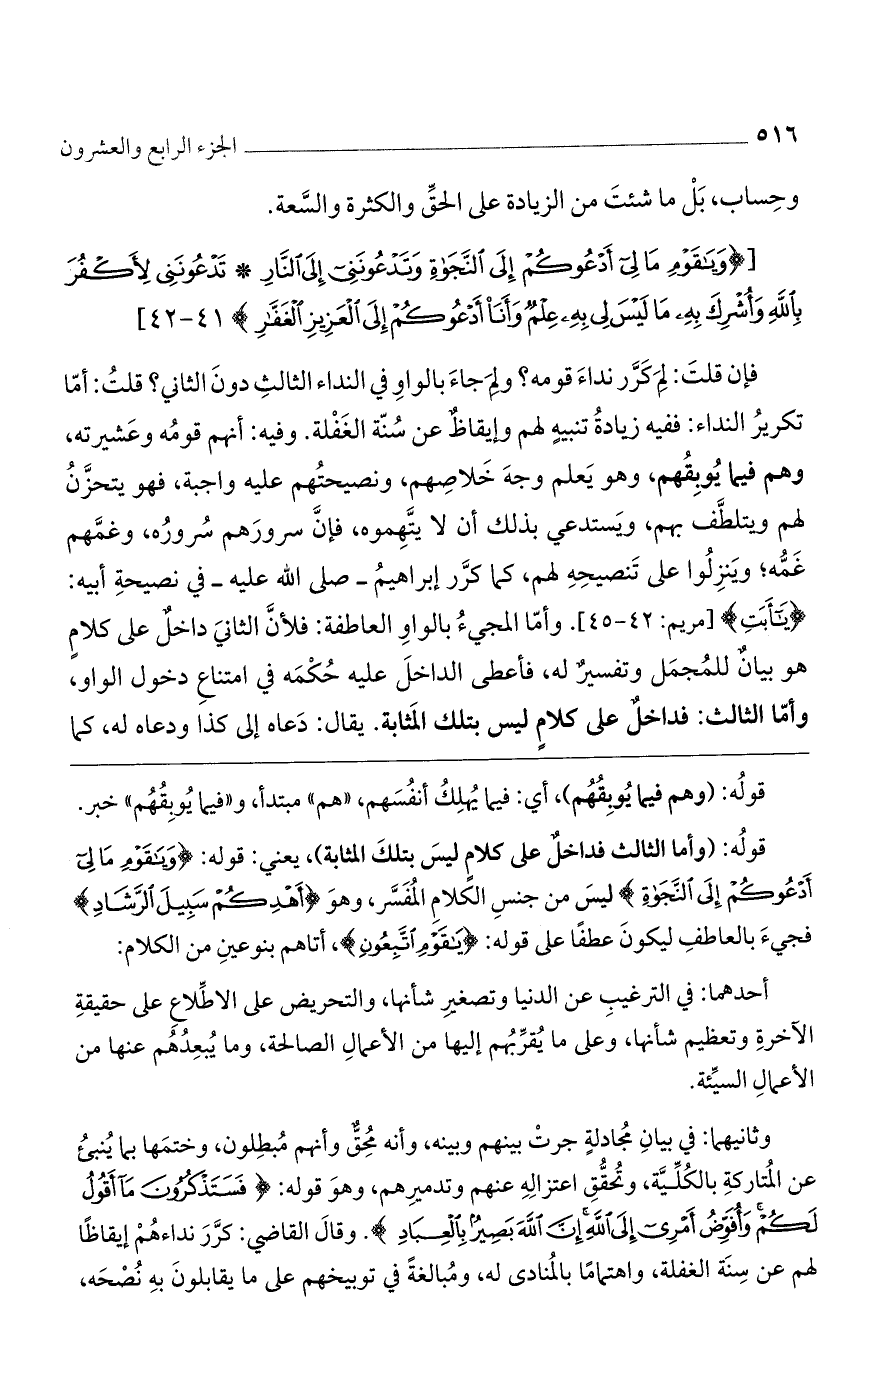 ٥١٦ ــــــــــــــــــــــــــــــ الجزء الرابع والعشرون
وحِساب، بَلْ ما شئتَ من الزيادة على الحقِّ والكثرة والسَّعة.
[﴿وَيَٰقَوْمِ مَا لِىٓ أَدْعُوكُمْ إِلَى ٱلنَّجَوٰةِ وَتَدْعُونَنِىٓ إِلَى ٱلنَّارِ * تَدْعُونَنِى لِأَكْفُرَ
بِٱللَّهِ وَأُشْرِكَ بِهِۦ مَا لَيْسَ لِى بِهِۦ عِلْمٌ وَأَنَا۠ أَدْعُوكُمْ إِلَى ٱلْعَزِيزِ ٱلْغَفَّٰرِ﴾ ٤١-٤٢]
فإن قلتَ: لِمَ كَرَّر نداءَ قومه؟ ولِمَ جاءَ بالواوِ في النداء الثالثِ دونَ الثاني؟ قلتُ: أمّا
تكريرُ النداء: ففيه زيادةُ تنبيهٍ لهم وإيقاظٌ عن سُنّة الغَفْلة. وفيه: أنهم قومُه وعَشيرته،
وهم فيما يُوبِقُهم، وهو يَعلم وجهَ خَلاصِهم، ونصيحتُهم عليه واجبة، فهو يتحزَّنُ
لهم ويتلطَّف بهم، ويَستدعي بذلك أن لا يتَّهِموه، فإنَّ سرورَهم سُرورُه، وغمَّهم
غَمُّه؛ ويَنزِلُوا على تَنصيحِهِ لهم، كما كرَّر إبراهيمُ ـ صلى الله عليه ـ في نصيحةِ أبيه:
﴿يَٰٓأَبَتِ﴾ [مريم: ٤٢-٤٥]. وأمّا المجيءُ بالواوِ العاطفة: فلأنَّ الثانيَ داخلٌ على كلامٍ
هو بيانٌ للمُجمَل وتفسيرٌ له، فأعطى الداخلَ عليه حُكْمَه في امتناعِ دخول الواو،
وأمّا الثالث: فداخلٌ على كلامٍ ليس بتلك المَثابة. يقال: دَعاه إلى كذا ودعاه له، كما
قولُه: (وهم فيما يُوبِقُهُم)، أي: فيما يُهلِكُ أنفُسَهم، «هم» مبتدأ، و«فيما يُوبِقُهُم» خبر.
قولُه: (وأما الثالث فداخلٌ على كلامٍ ليسَ بتلكَ المثابة)، يعني: قوله: ﴿وَيَٰقَوْمِ مَا لِىٓ
أَدْعُوكُمْ إِلَى ٱلنَّجَوٰةِ﴾ ليسَ من جنسِ الكلامِ المُفَسَّر، وهوَ ﴿أَهْدِكُمْ سَبِيلَ ٱلرَّشَادِ﴾
فجيءَ بالعاطفِ ليكونَ عطفًا على قوله: ﴿يَٰقَوْمِ ٱتَّبِعُونِ﴾، أتاهم بنوعينِ من الكلام:
أحدهما: في الترغيبِ عن الدنيا وتصغيرِ شأنها، والتحريض على الاطِّلاعِ على حقيقةِ
الآخرةِ وتعظيم شأنها، وعلى ما يُقرِّبُهم إليها من الأعمالِ الصالحة، وما يُبعِدُهُم عنها من
الأعمالِ السيِّئة.
وثانيهما: في بيانِ مُجادلةٍ جرتْ بينهم وبينه، وأنه مُحِقٌّ وأنهم مُبطِلون، وختمَها بما يُنبئُ
عن المُتاركةِ بالكُلِّيَّة، وتُحقُّقِ اعتزالِهِ عنهم وتدميرِهم، وهوَ قوله: ﴿فَسَتَذْكُرُونَ مَآ أَقُولُ
لَكُمْ ۚ وَأُفَوِّضُ أَمْرِىٓ إِلَى ٱللَّهِ ۚ إِنَّ ٱللَّهَ بَصِيرٌۢ بِٱلْعِبَادِ﴾. وقالَ القاضي: كرَّرَ نداءهُمْ إيقاظًا
لهم عن سِنَة الغفلة، واهتمامًا بالمُنادى له، ومُبالغةً في توبيخهم على ما يقابلونَ بهِ نُصْحَه،